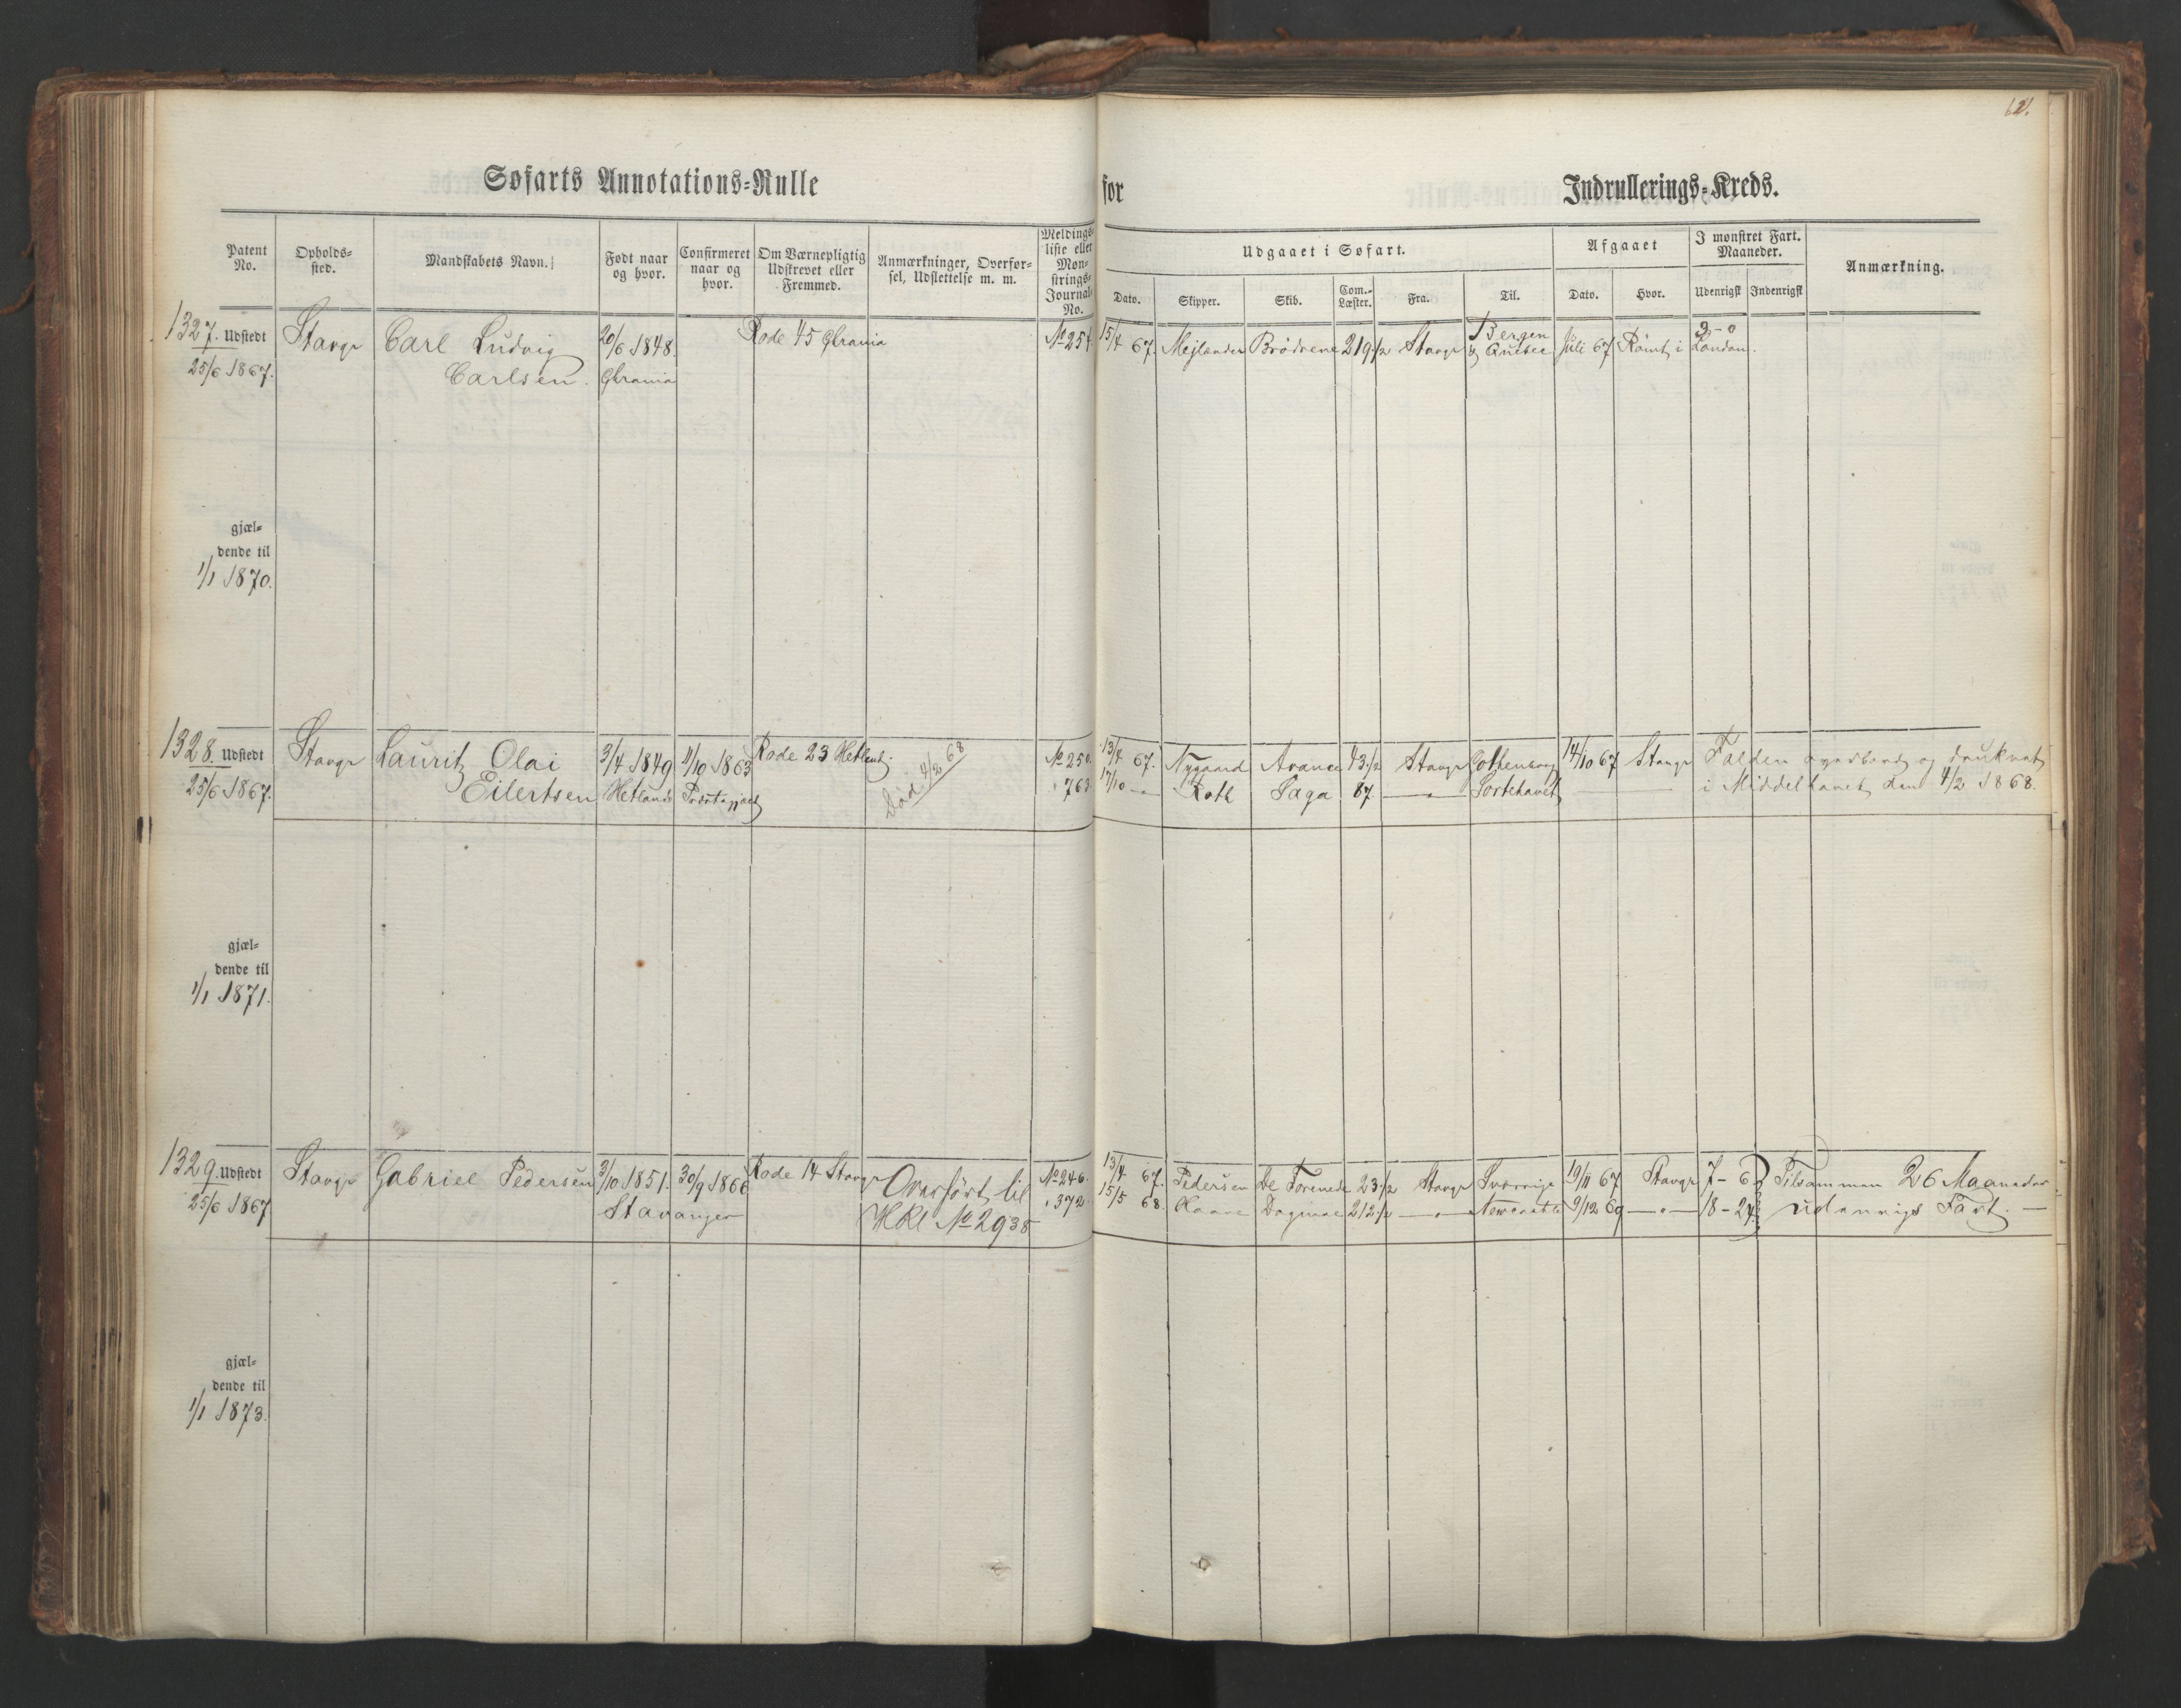 Søfarts Annotations-Rulle for Indrullerings-Kreds.
Patent No.
Opholds-sted.
Mandskabets Navn.
Født naar og hvor.
Confirmeret naar og hvor.
Om Værnepligtig Udskrevet eller Fremmed.
Anmærkninger, Overførsel, Udslettelse m. m.
Meldings-liste eller Mønstrings-Journal No.
Udgaaet i Søfart.
Dato.
Skipper.
Skib.
Com.-Læster.
Fra.
Til.
Afgaaet
Dato.
Hvor.
I mønstret Fart. Maaneder.
Udenrigsk
Indenrigsk
Anmærkning.
1327. Udstedt Stavgr Carl Ludvig 20/6 1848. Rode 45 Chrania No 254 15/4 67. Mejlander Brödrene 219 1/2 Stavgr Bergen Juli 67 Römt i London. 3-0
25/6 1867. Carlsen. Chrania & Quebec
gjæl-
dende til
1/1 1870.
1328. Udstedt Stavgr Lauritz Olai 3/4 1849 4/10 1863 Rode 23 Hetland. Död 4/2 68 No 250. 13/4 67. Nygaard Avance 43 1/2 Stavgr Gothenborg 14/10 67 Stavgr Falden overbord og druknet
25/6 1867. Eilertsen Hetland " 763. 17/10 — Roth Saga 87. — " — Sortehavet i Middelhavet den 4/2 1868.
gjæl-
dende til
1/1 1871.
1329. Udstedt Stavgr Gabriel Pedersen 3/10 1851. 30/9 1866 Rode 14 Stavgr Overfört til No 246. 13/4 67. Pedersen De Forenede 23 1/2 Stavgr Sverrige 19/11 67 Stavgr 7-6 Tilsammen 26 Maaneder
25/6 1867 Stavanger HRl No 2938 " 372. 15/5 68. Dagmar 212 1/2 — " — Newcastle 9/12 69 — " — 18-24 udenrigs Fart. —
gjæl-
dende til
1/1 1873.